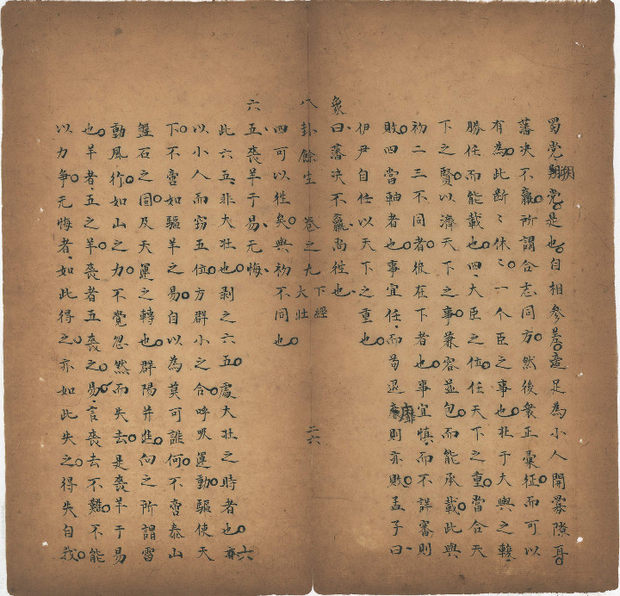 蜀党朔党是也自相參差適足為小人開釁隙耳
藩决不羸所謂合志同方然後衆正彙征而可以
有為此断〻休〻一个臣之事也壮于大輿之輹
勝任而能載也四大臣之位任天下之重當合天
下之賢以濟天下之事兼容並包而能承載此與
初二三不同者彼在下者也事宜慎而不詳審則
敗四當軸者也事宜任而萄退靡則亦敗孟子曰
伊尹自任以天下之重也
象曰藩决不羸尚徃也
四可以徃矣與初不同也
八卦餘生 卷之九 下經 大壮 二六
六五喪羊于易无悔
此六五非大壮也剥之六五處大壮之時者也六
以小人而窃五位方群小之合呼吸運動驅使天
下不啻如驅羊之易自以為莫可誰何不啻泰山
盤石之固及天運之轉也群陽并進向之所謂雷
動風行如山之力不覺忽然而失去是喪羊于易
也羊者五之羊喪者五喪之易言喪去不難不能
以力争无悔者如此得之亦如此失之得失自我